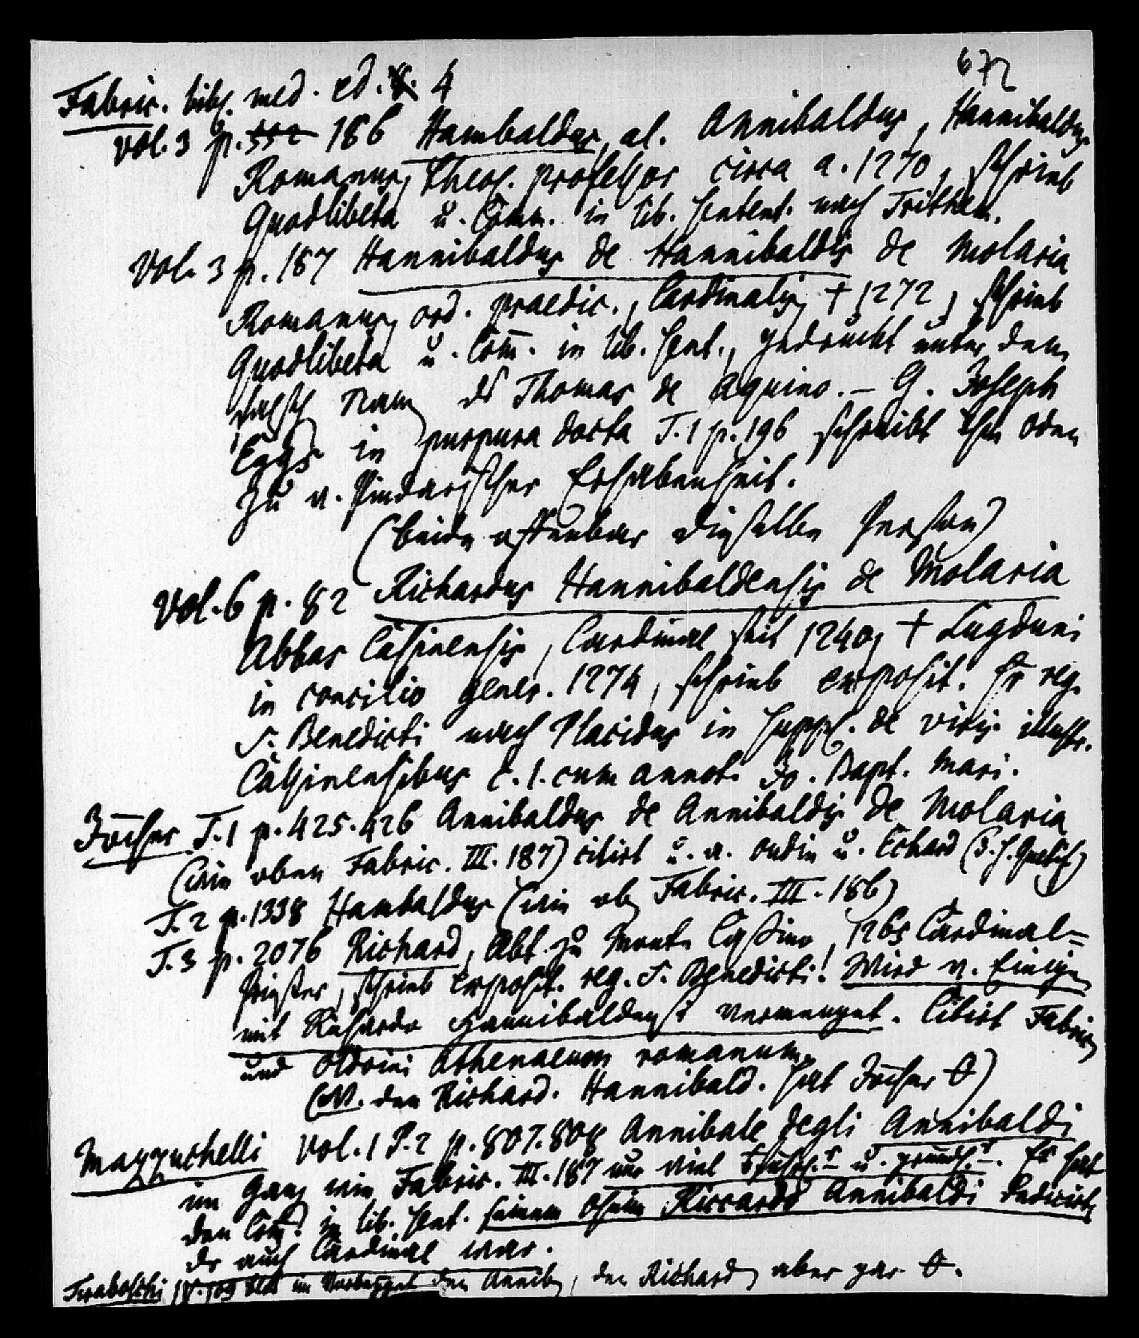 672
Fabric. bibl. med. ed. 4
vol. 3 p. 552 186 Hambaldus, al. Annibaldus, Hannibaldus
Romanus, Theol. professor circa a. 1270, schrieb
Quodlibeta u. Com̄. in lib. sentent. nach Trithem.
Vol. 3 p. 187 Hannibaldus de Hannibaldis de Molaria
Romanus, ord. praedic., Cardinalis, † 1272, schrieb
Quodlibeta u. Com̄. in lib. sent., gedruckt unter dem
falsch Namen ds Thomas de Aquino. – G. Joseph
Eggs in purpura docta T. 1 p. 196 schreibt ihm oden
zu v. Pindarischer Erhabenheit.
(beide offenbar dieselbe Person)
Vol. 6 p. 82 Richardus Hannibaldensis de Molaria
Abbas Casinensis, Cardinal seit 1240, † Lugduni
in concilio gener. 1274, schrieb exposit. in reg.
S. Benedicti nach Placidus in suppl. de viris illustr.
Cassinensibus c. 1. cum annot. Jo. Bapt. Mari.
Jöcher T. 1 p. 425. 426 Annibaldus de Annibaldis de Molaria
(wie oben Fabric. III. 187) citirt u. a. Oudin u. Echard
T. 2 p. 1338 Hambaldus (wie ob Fabric. III. 186)
T. 3 p. 2076 Richard, Abt zu Monte Cassino, Cardinal-
Priester, schrieb exposit. reg. S. Benedicti! Wird v. Einigen
mit Richardo Hannibaldensi vermenget. Citirt Fabric.
und Oldoini Athenaeum romanum.
(NB. den Richard. Hannibald. hat Jöcher 0)
Mazzuchelli Vol. 1 P. 2 p. 807. 808 Annibale degli Annibaldi
im Ganz wie Fabric. III. 187 nur viel u. gründl. Er hat
den Com̄. in lib. sent. seinem Oheim Riccardo Annibaldi dedicirt,
der auch Cardinal war.
Tiraboschi IV. 109 den Annib, den Richard aber gar 0.